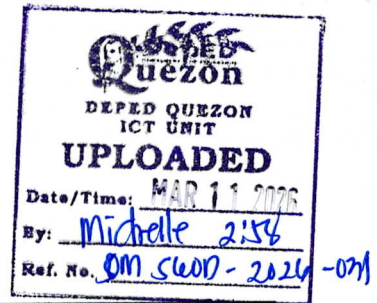 DEPED
Quezon
DEPED QUEZON
ICT UNIT
UPLOADED
Date/Time: MAR 11 2026
By: Michelle 2:58
Ref. No. DM SGOD - 2026